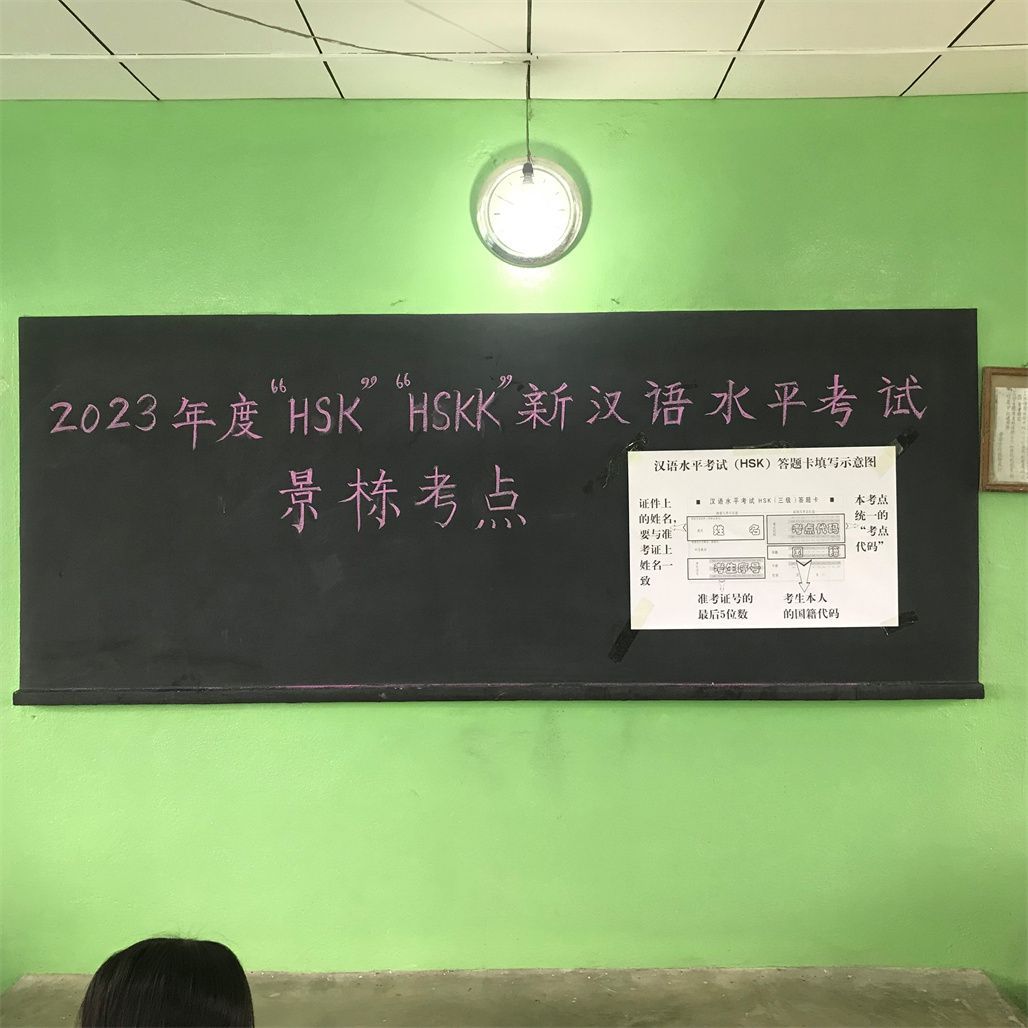 2023年度“HSK”“HSKK”新汉语水平考试
景栋考点
汉语水平考试（HSK）答题卡填写示意图
证件上
的姓名，
要与准
考证上
姓名一
致
■ 汉语水平考试 HSK（三级）答题卡 ■
姓 名
考点代码
国 籍
考生序号
本考点
统一的
“考点
代码”
准考证号的
最后5位数
考生本人
的国籍代码